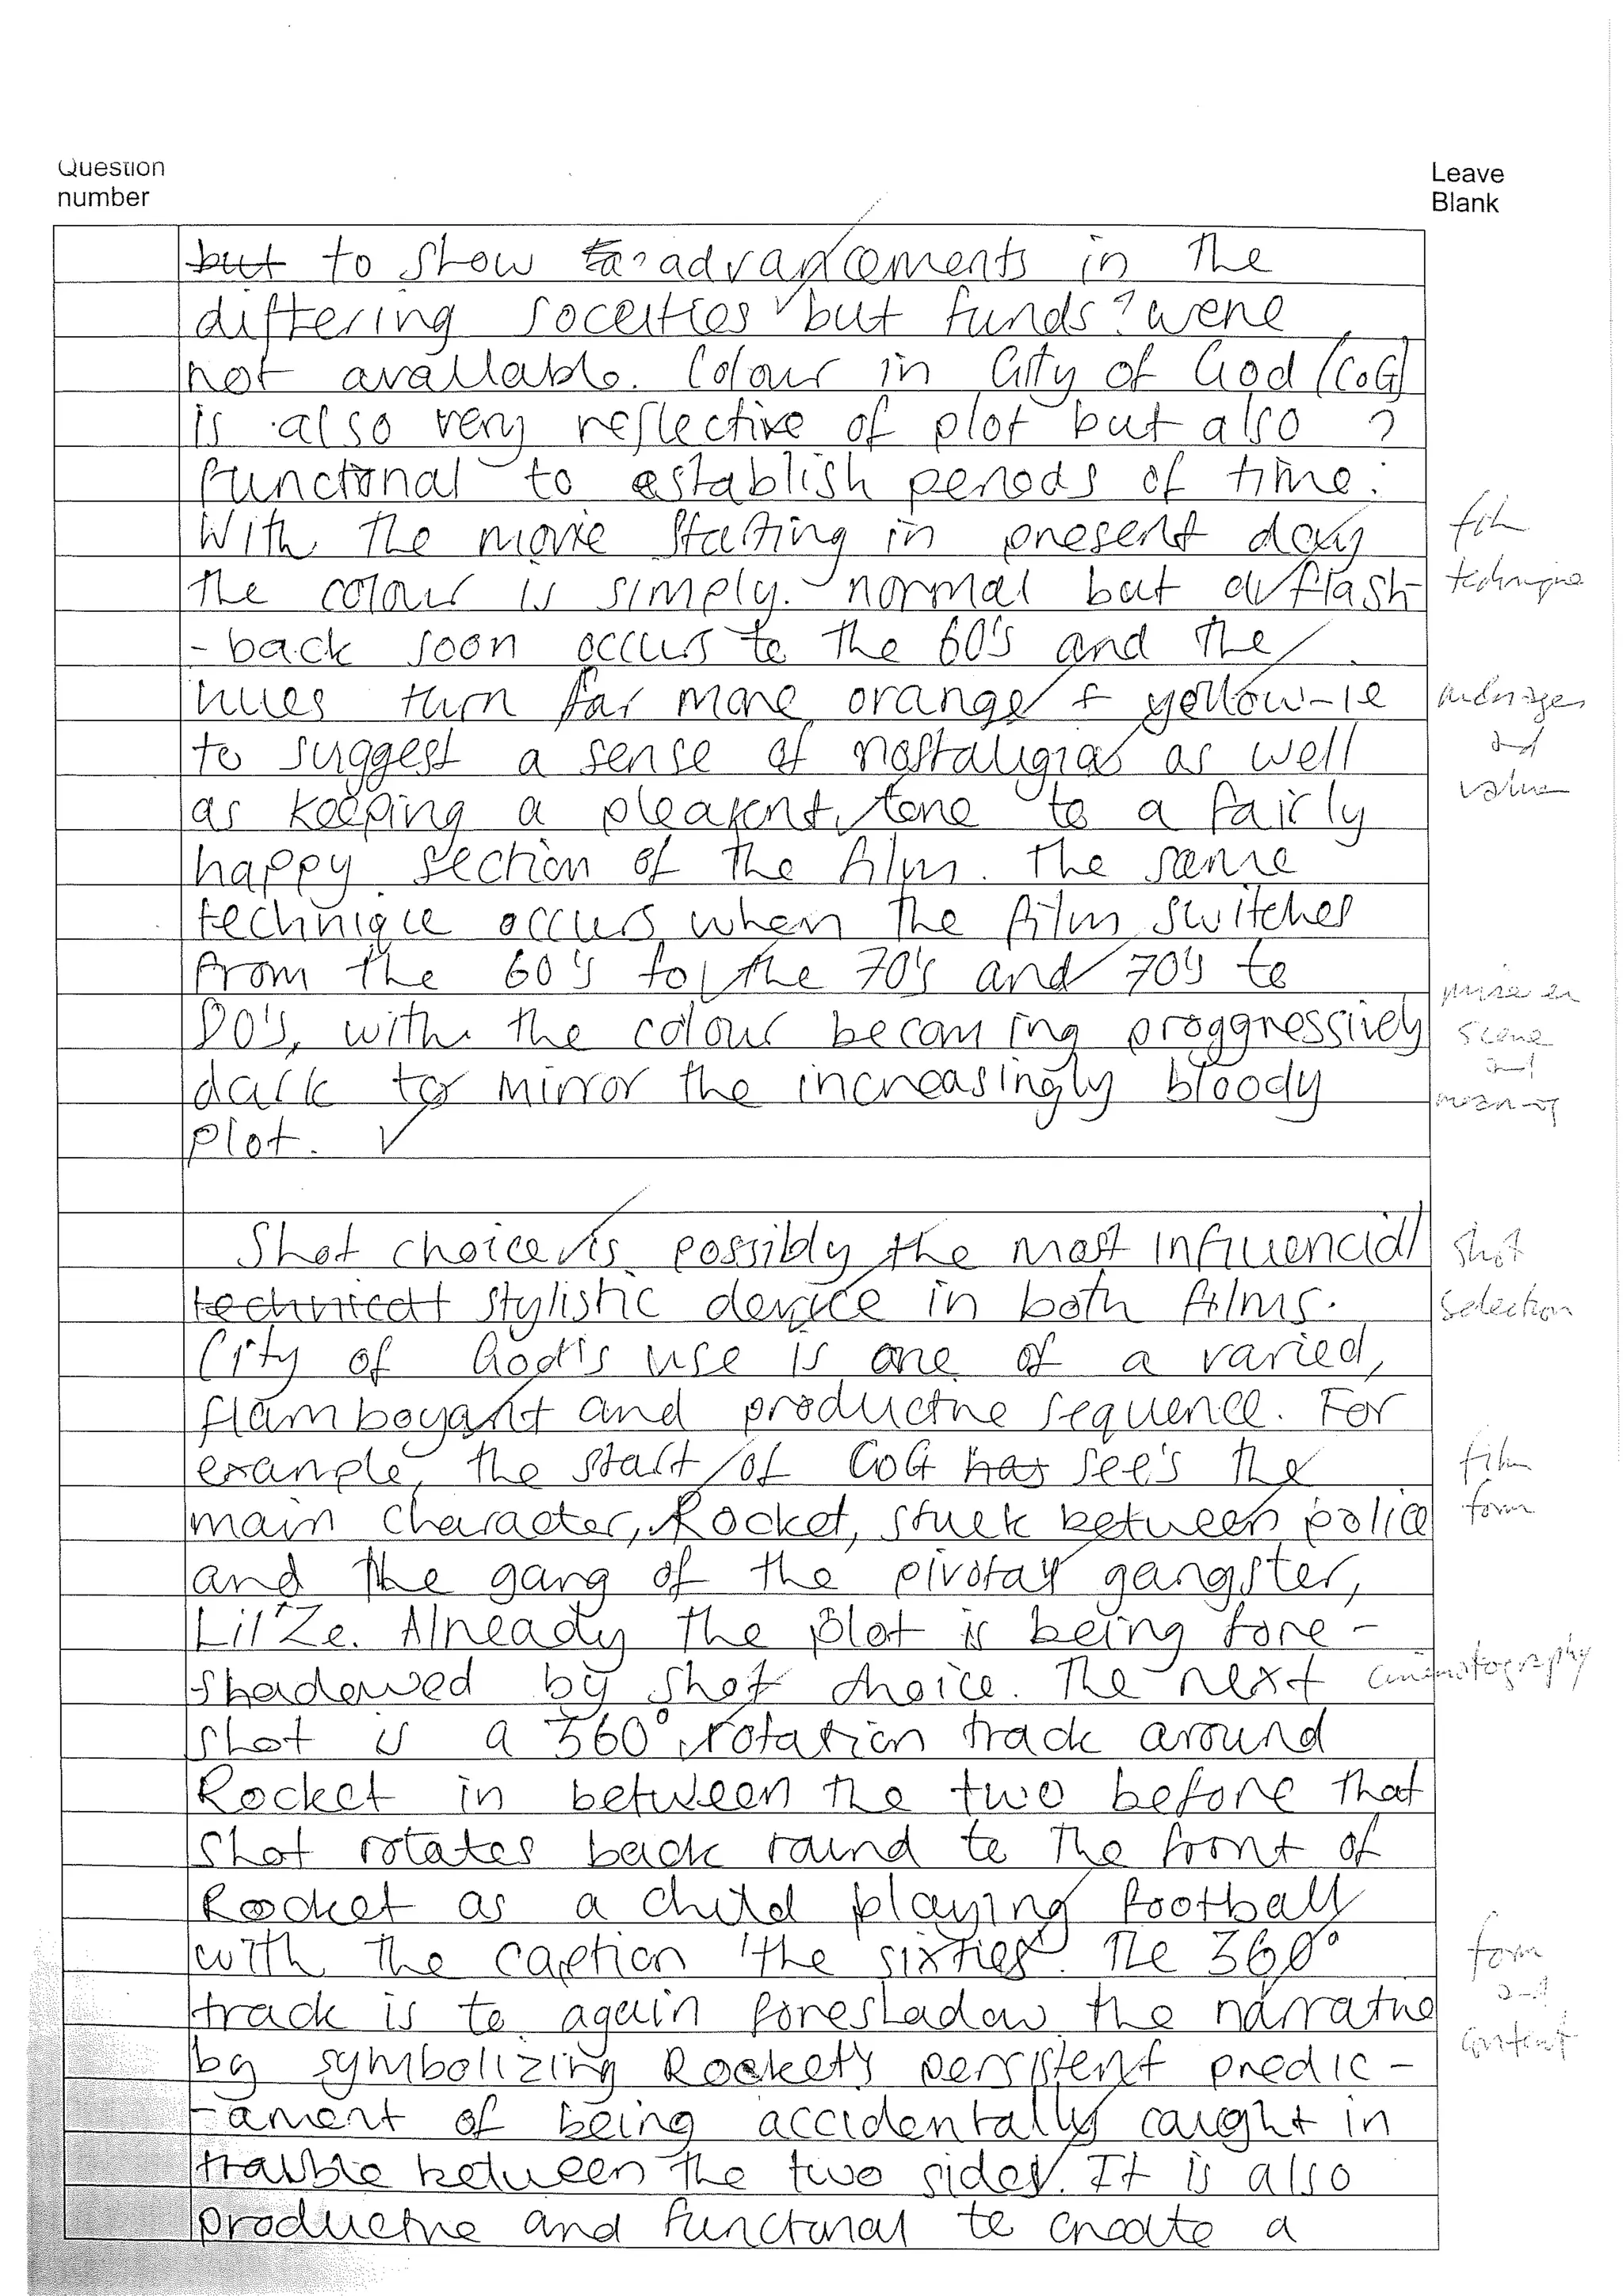 Question
number
Leave
Blank
but to show to? advancements in the
differing soceities but funds? were
not available. Colour in City of God (CoG)
is also very reflective of plot but also ?
functional to establish periods of time.
With the movie starting in present day
film
the colour is simply normal but a flash-
technique
-back soon occurs to the 60's and the
hues turn far more orange + yellow-ie
messages
to suggest a sense of nostaligia as well
and
as keeping a pleasent tone to a fairly
values
happy section of the film. The same
technique occurs when the film switches
from the 60's to the 70's and 70's to
mise en
80's, with the colour becoming proggressively
scene
and
dark to mirror the increasingly bloody
meaning
plot.
Shot choice is possibly the most influencial
shot
technical stylistic device in both films.
selection
City of God's use is one of a varied,
flamboyant and productive sequence. For
example, the start of CoG has see's the
film
main character, Rocket, stuck between police
form
and the gang of the pivotal gangster,
Lil'Ze. Already the plot is being fore-
shadowed by shot choice. The next
cinematography
shot is a 360° rotation track around
Rocket in between the two before that
shot rotates back round to the front of
Rocket as a child playing football
with the caption 'the sixties'. The 360°
form
track is to again foreshadow the narrative
and
content
by symbolizing Rocket's persistent predic-
-ament of being accidentally caught in
trouble between the two sides. It is also
productive and functional to create a